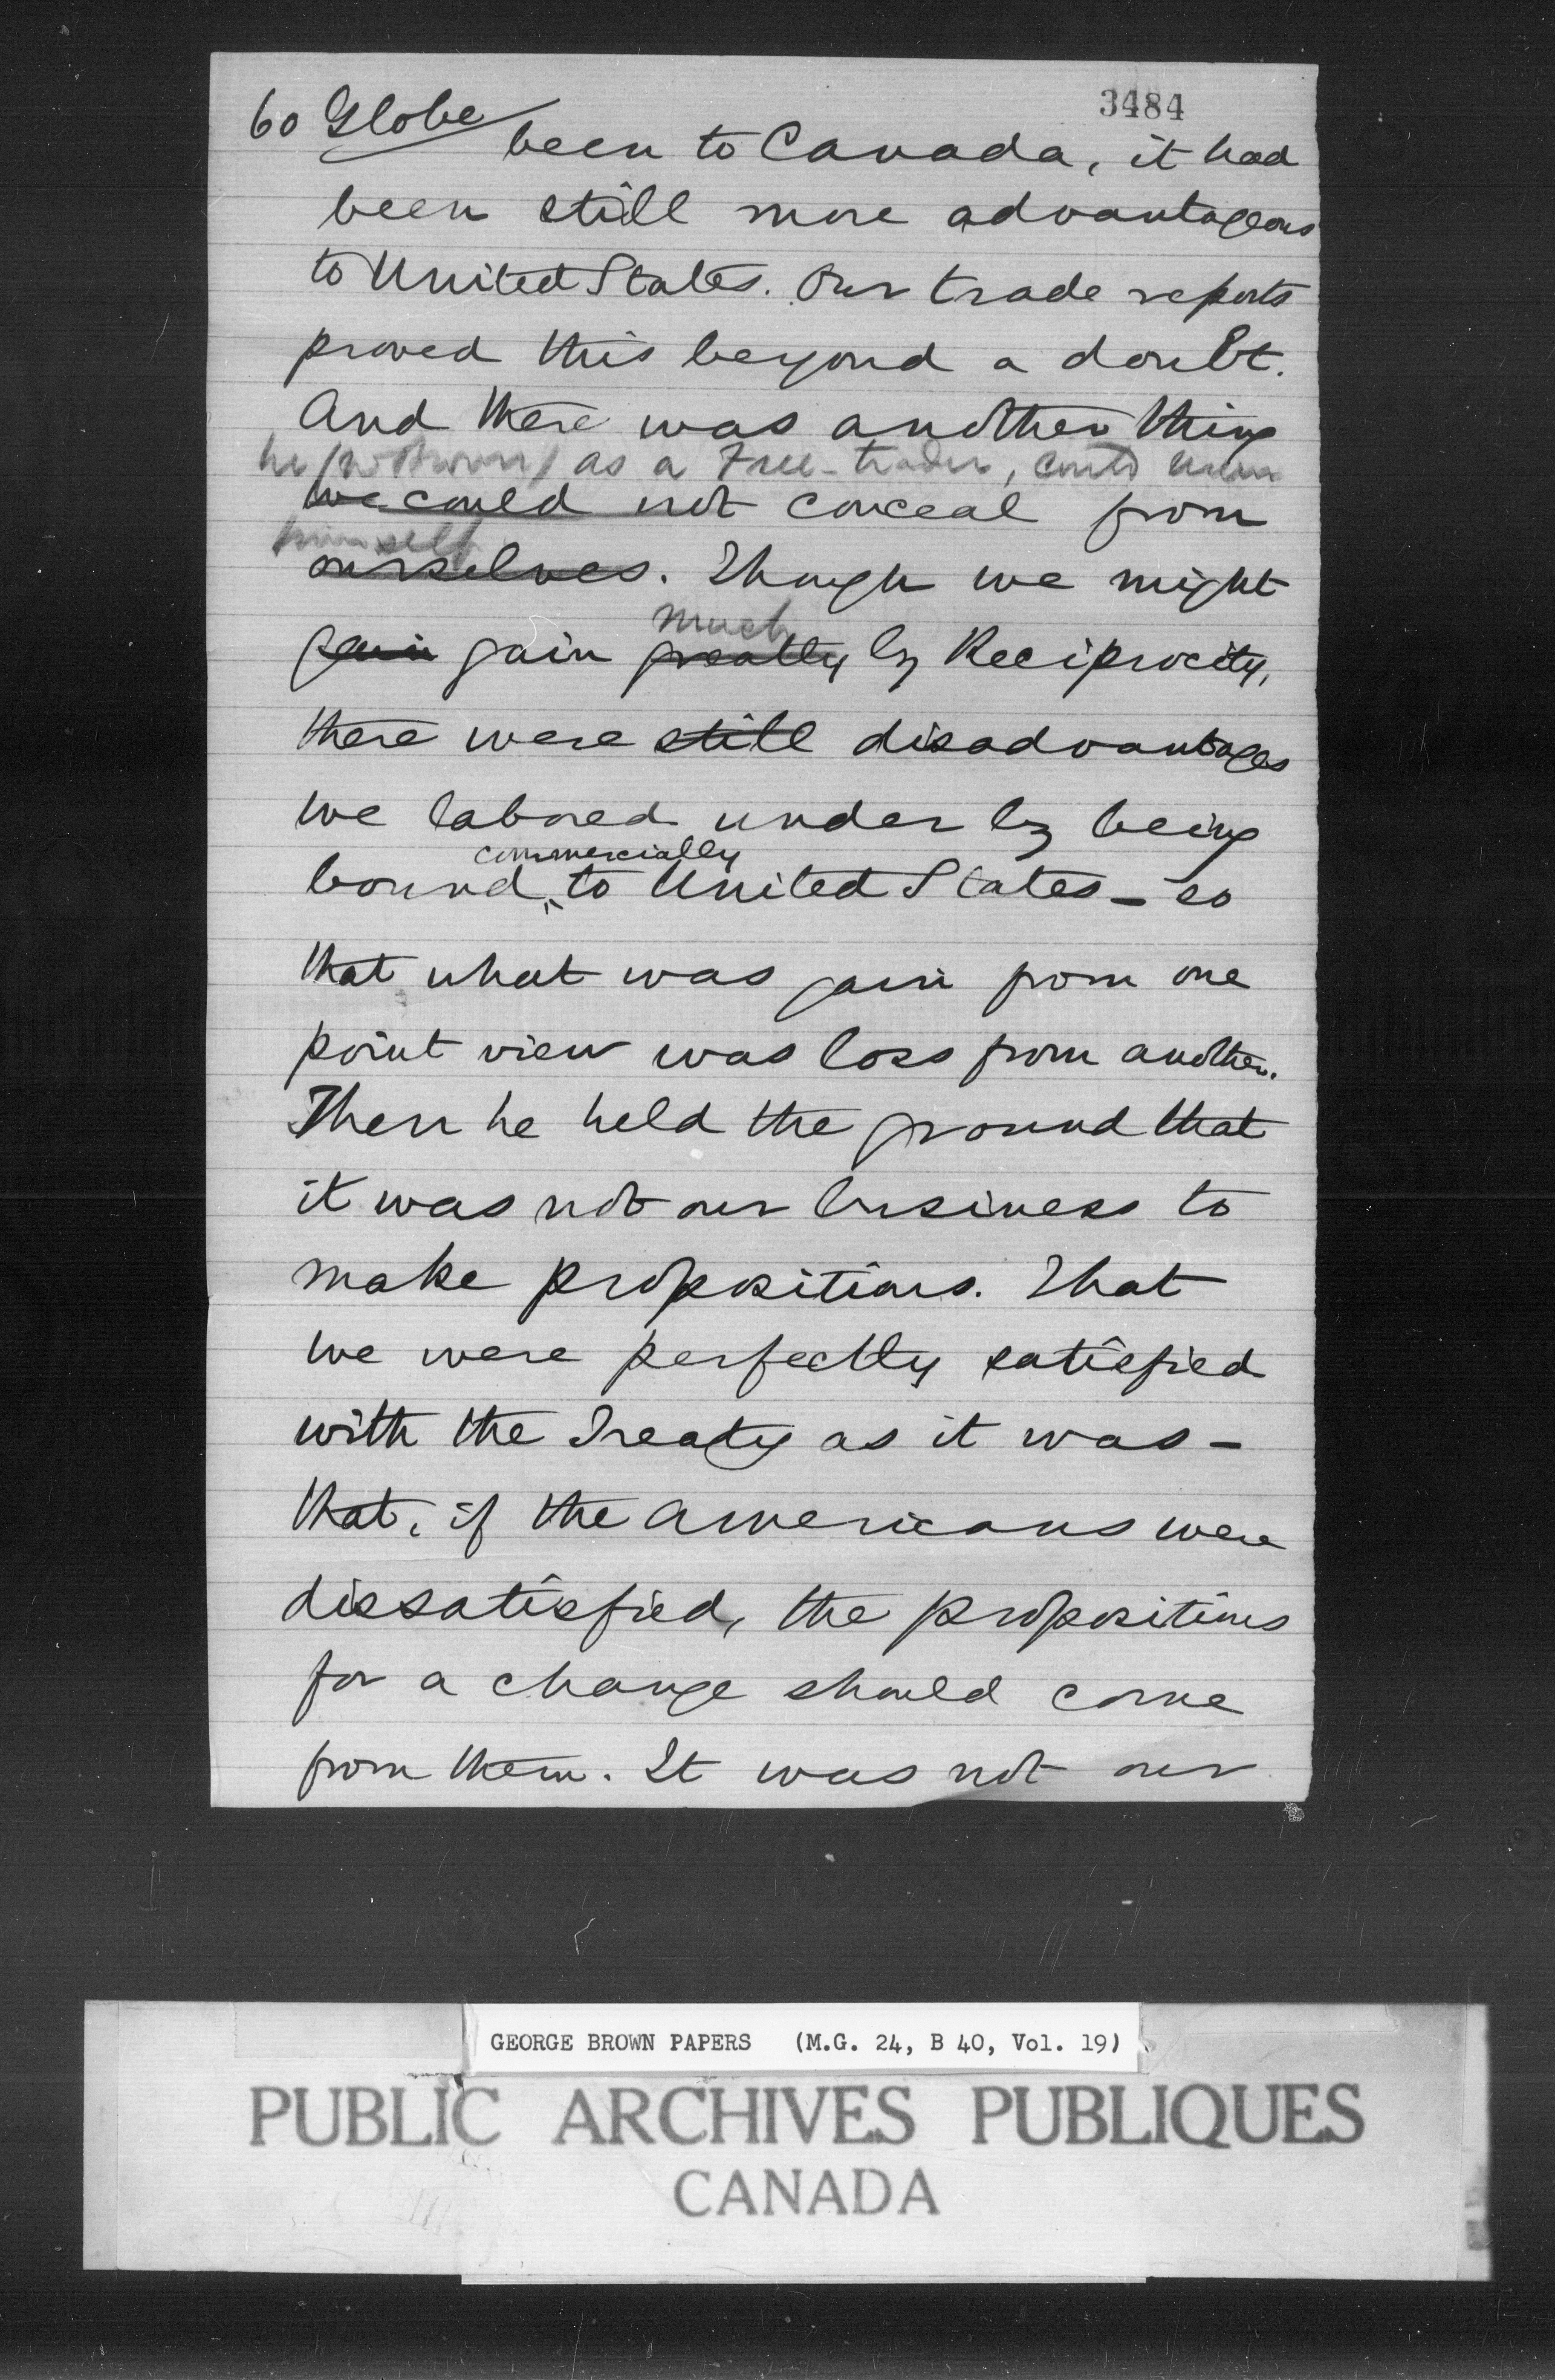 3484
60 Globe
been to Canada, it had
been still more advantageous
to United States. Our trade reports
proved this beyond a doubt.
And there was another thing
he (Mr Brown) as a Free-trader, could never
we could not conceal from
himself
ourselves. Though we might
much
gain gain greatly by Reciprocity,
there were still disadvantages
we labored under by being
commercially
bound to United States - so
that what was gain from one
point view was loss from another.
Then he held the ground that
it was not our business to
make propositions. That
we were perfectly satisfied
with the Treaty as it was -
that, if the Americans were
dissatisfied, the propositions
for a change should come
from them. It was not our
GEORGE BROWN PAPERS (M.G. 24, B 40, Vol. 19)
PUBLIC ARCHIVES PUBLIQUES
CANADA